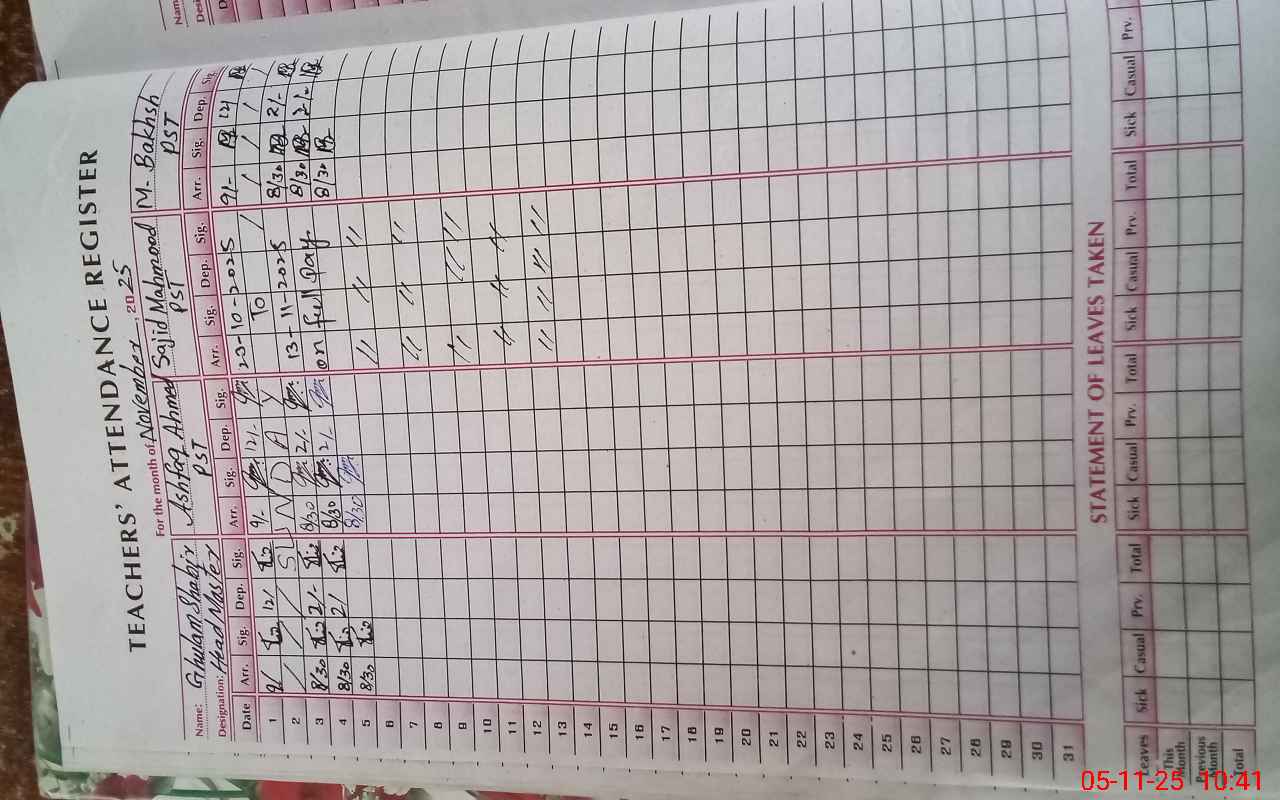 TEACHERS' ATTENDANCE REGISTER
For the month of November, 2025
Name: Ghulam Shabir Ashfaq Ahmed Sajid Mahmood M. Bakhsh
Designation: Head Master PST PST PST
Date Arr. Sig. Dep. Sig. Arr. Sig. Dep. Sig. Arr. Sig. Dep. Sig. Arr. Sig. Dep. Sig.
1 9/ 12/ 9/- 12/- 20-10-2025 9/- 12/
2 / / / S U N D A Y To / / / / /
3 8/30 2/- 8/30 2/- 13-11-2025 8/30 2/-
4 8/30 2/ 8/30 2/- on full pay 8/30 2/-
5 8/30 8/30 // // // 8/30
6
7 // // //
8
9 // // //
10
11 // // //
12 // // // //
13
14
15
16
17
18
19
20
21
22
23
24
25
26
27
28
29
30
31
STATEMENT OF LEAVES TAKEN
Leaves Sick Casual Prv. Total Sick Casual Prv. Total Sick Casual Prv. Total Sick Casual Prv.
This Month
Previous Month
Total
Nam
Desi
D
05-11-25 10:41